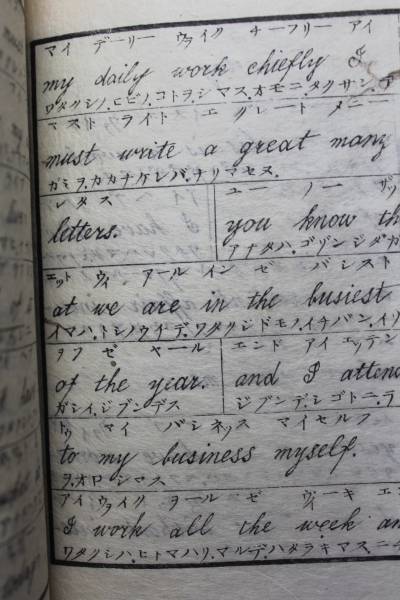 マイ デーリー ウァイク チーフリー アイ
my daily work chiefly I
ワタクシノ、ヒビノ、コトヲシマス、オモニ、タクサン、テ
マスト ライト エ グレート メニー
must write a great many
ガミヲ、カカナケレバ、ナリマセヌ.
レタス
letters.
ユー ノー ザッ
you know th
アナタハ、ゴゾンジダガ
エット ウィ アール イン ゼ バシスト
at we are in the busiest
イマハ、トシノウイデ、ワタクシドモノ、イチバン、イソ
ヲフ ゼ ヤール
of the year.
ガシイ、ジブンデス
エンド アイ エッテン
and I attend
ジブンデ、シゴトニ、ラ
トゥ マイ バシネッス マイセルフ
to my business myself.
ヲ、オロシマス
アイ ウァイク ヲール ゼ ウィーキ エン
I work all the week an
ワタクシハ、ヒトマハリ、マルデ、ハタラキマス、ニチ